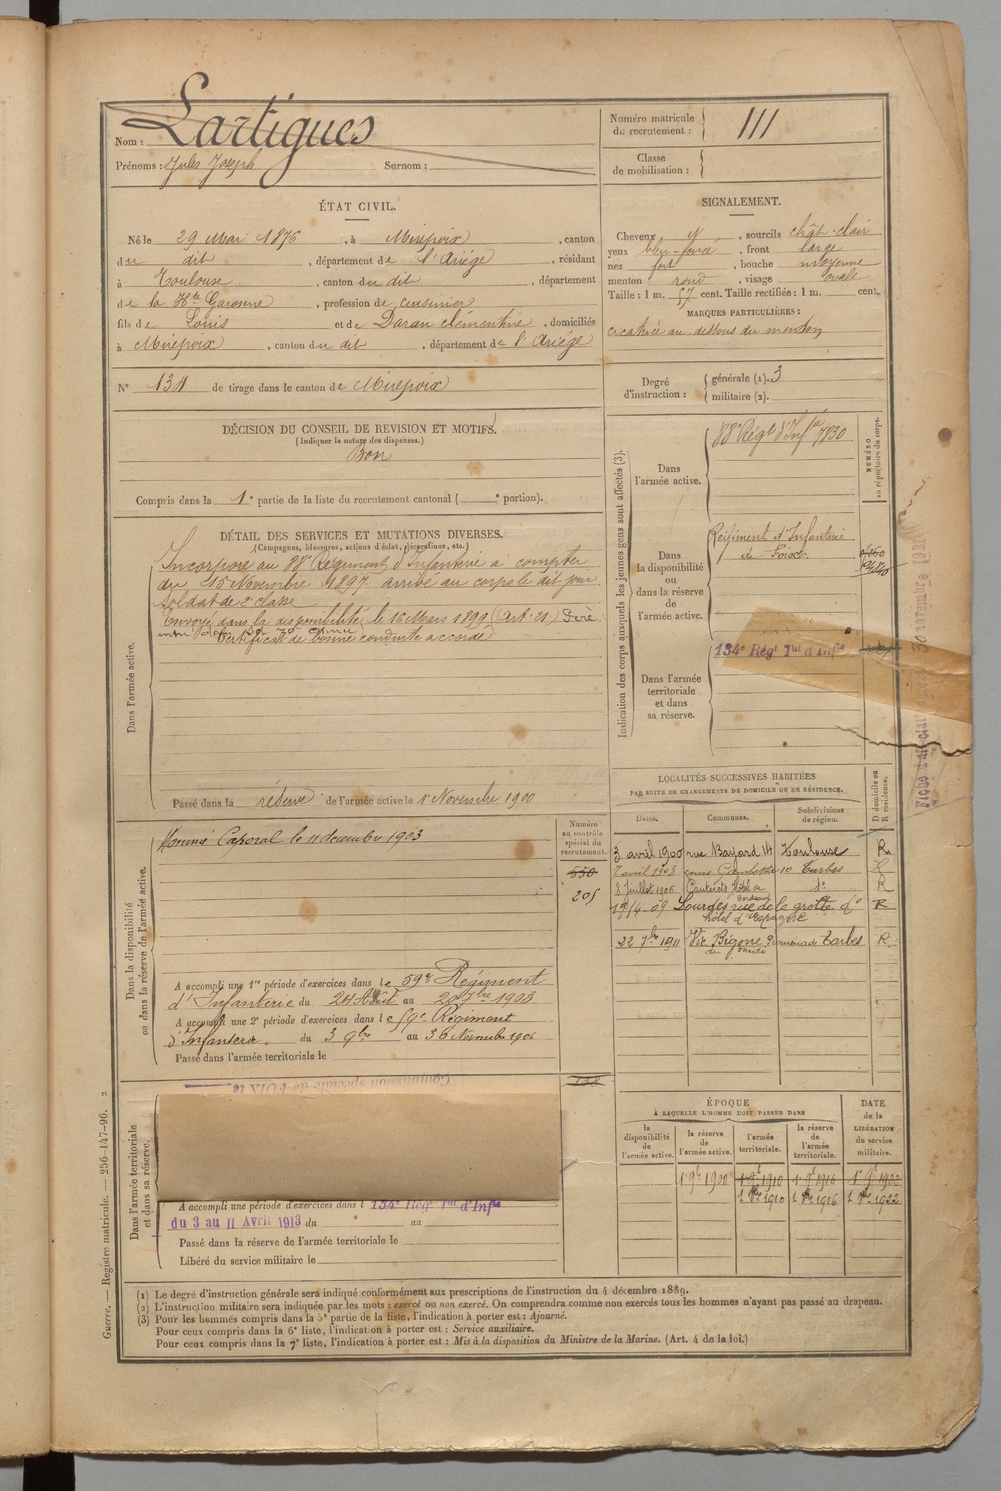 Nom : Lartigues
Prénoms : Jules Joseph Surnom :
Numéro matricule
du recrutement : 111
Classe
de mobilisation :
ÉTAT CIVIL.
Né le 29 Mai 1876, à Mirepoix, canton
du dit, département de l'Ariège, résidant
à Toulouse, canton du dit, département
de la Hte Garonne, profession de cuisinier
fils de Louis et de Daran Clémentine, domiciliés
à Mirepoix, canton du dit, département de l'Ariège
N° 131 de tirage dans le canton de Mirepoix
SIGNALEMENT.
Cheveux y, sourcils chât-clair
yeux bleu-foncé, front large
nez fort, bouche moyenne
menton rond, visage ovale
Taille : 1 m. 57 cent. Taille rectifiée : 1 m. cent.
MARQUES PARTICULIÈRES :
cicatrice au dessous du menton
Degré
d'instruction :
générale (1). 3
militaire (2).
DÉCISION DU CONSEIL DE REVISION ET MOTIFS.
(Indiquer la nature des dispenses.)
Bon
Compris dans la 1e partie de la liste du recrutement cantonal ( e portion).
DÉTAIL DES SERVICES ET MUTATIONS DIVERSES.
(Campagnes, blessures, actions d'éclat, décorations, etc.)
Dans l'armée active.
Incorporé au 88e Régiment d'Infanterie à compter
du 15 Novembre 1897. arrivé au corps le dit jour
soldat de 2e classe
Envoyé dans la disponibilité le 16 Mars 1899 (Art. 21)
Certificat de bonne conduite accordé
Passé dans la réserve de l'armée active le 1r Novembre 1900
Indication des corps auxquels les jeunes gens sont affectés (3).
NUMÉRO
au répertoire du corps.
Dans
l'armée active.
88e Régt d'Infie 7830
Dans
la disponibilité
ou
dans la réserve
de
l'armée active.
Régiment d'Infanterie
de Foix
Dans l'armée
territoriale
et dans
sa réserve.
134e Régt Tal d'Infie
LOCALITÉS SUCCESSIVES HABITÉES
PAR SUITE DE CHANGEMENTS DE DOMICILE OU DE RÉSIDENCE.
Dates. Communes. Subdivisions
de région.
D domicile ou
R résidence.
3 avril 1900 rue Bayard 14 Toulouse R
7 avril 1903 cours Gambetta 10 Tarbes R
8 Juillet 1906 Cauterets Hôtel de Bordeaux do R
19/4-09 Lourdes rue de la grotte do R
hôtel d'Espagne
22 7bre 1911 Vic Bigorre Promenade Tarbes R
du midi
Dans la disponibilité
ou dans la réserve de l'armée active.
Nommé Caporal le 11 décembre 1903
Numéro
au contrôle
spécial du
recrutement.
550
205
A accompli une 1re période d'exercices dans le 59e Régiment
d'Infanterie du 24 Août au 20 7bre 1903
A accompli une 2e période d'exercices dans le 59e Régiment
d'Infanterie du 3 9bre au 30 Novembre 1906
Passé dans l'armée territoriale le
Commission spéciale de FOIX le
Dans l'armée territoriale
et dans sa réserve.
A accompli une période d'exercices dans l 134e Régt Tal d'Infie
du 3 au 11 Avril 1913 du au
Passé dans la réserve de l'armée territoriale le
Libéré du service militaire le
ÉPOQUE
À LAQUELLE L'HOMME DOIT PASSER DANS
la
disponibilité
de
l'armée active.
la réserve
de
l'armée active.
l'armée
territoriale.
la réserve
de
l'armée
territoriale.
DATE
de la
LIBÉRATION
du service
militaire.
1r 9e 1900 1r 9e 1910 1r 9e 1916 1r 9e 1922
1 8bre 1910 1 8bre 1916 1 8bre 1922
(1) Le degré d'instruction générale sera indiqué conformément aux prescriptions de l'instruction du 4 décembre 1889.
(2) L'instruction militaire sera indiquée par les mots : exercé ou non exercé. On comprendra comme non exercés tous les hommes n'ayant pas passé au drapeau.
(3) Pour les hommes compris dans la 5e partie de la liste, l'indication à porter est : Ajourné.
Pour ceux compris dans la 6e liste, l'indication à porter est : Service auxiliaire.
Pour ceux compris dans la 7e liste, l'indication à porter est : Mis à la disposition du Ministre de la Marine. (Art. 4 de la loi.)
Guerre. — Registre matricule. — 256-147-96. 2